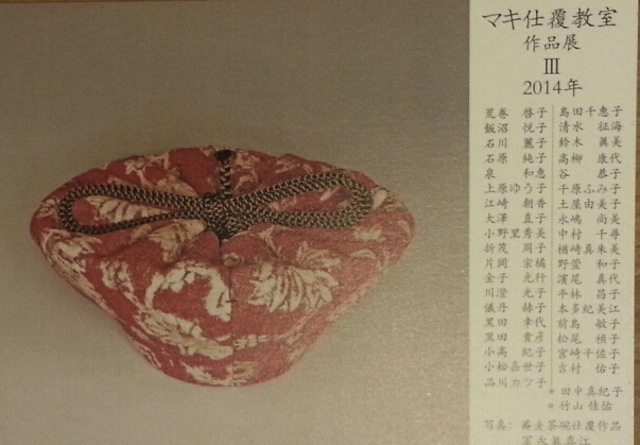 マキ仕覆教室
作品展
III
2014年
荒巻 啓子
飯沼 悦子
石川 麗子
石原 純子
泉 和恵
上原ゆう子
江崎 朝香
大澤 直子
小野里秀美
折茂 周子
片岡 宗橘
金子 光行
川澄 光子
儀丹 赫子
黒田 幸代
黒田 貴彦
小髙 紀子
小松嘉世子
品川カツ子
島田千恵子
清水 征海
鈴木 眞美
高柳 康代
谷 恭子
千原ふみ子
土屋由美子
永嶋 尚美
中村 千尋
楢崎真朱美
野萱 和子
濱尾 真代
平林 昌子
本多紀美江
前島 敏子
松尾 禎子
宮崎千佐子
吉村 佑子
* 田中真紀子
* 竹山佳佑
写真: 茶碗仕覆作品